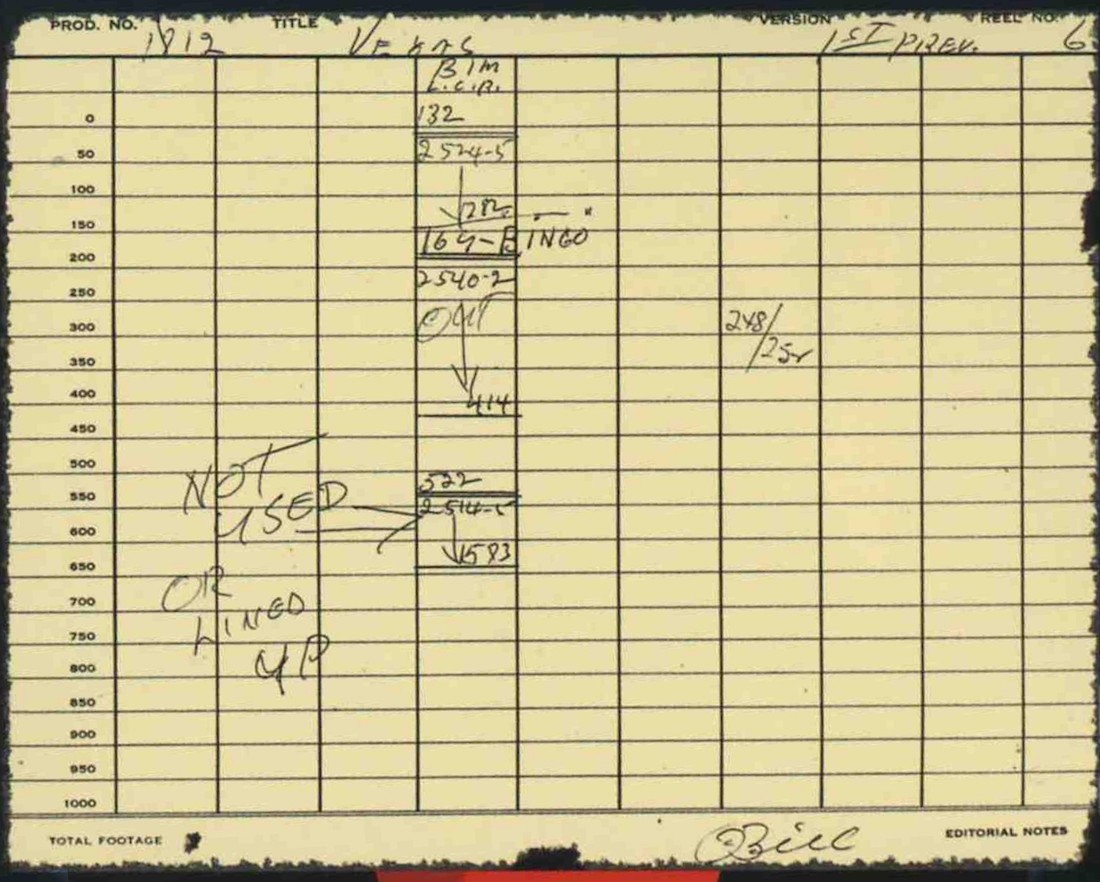 PROD. NO. 1812 TITLE VEGAS VERSION 1ST PREV. REEL NO. 6
L.C.R.
0 132
50 2524-5
100
150 282
200 169-BINGO
250 2540-2
300 OUT 248/
350
400 414
450
500 NOT 522
550 USED 2514-5
600
650 593
700 OR
750 LINED
800 UP
850
900
950
1000
TOTAL FOOTAGE Bill EDITORIAL NOTES